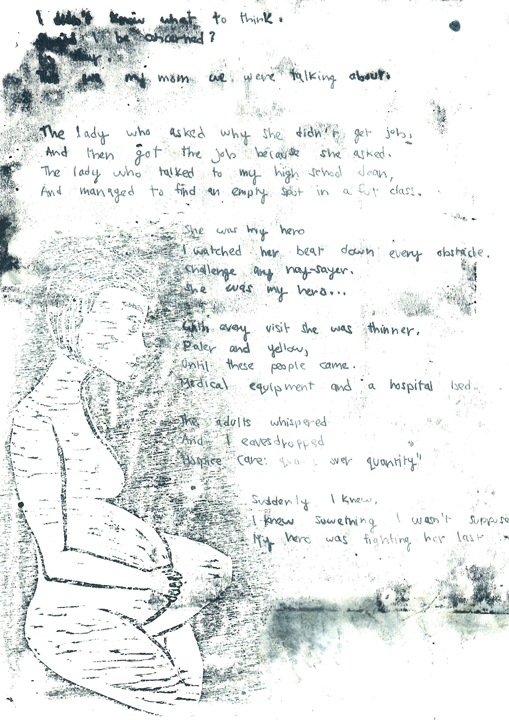 I didn't know what to think.
I be concerned?
my mom we were talking about.
The lady who asked why she didn't get job,
And then got the job because she asked.
The lady who talked to my high school dean,
And managed to find an empty spot in a full class.
She was my hero
I watched her beat down every obstacle.
challenge any nay-sayer.
She was my hero...
With every visit she was thinner.
Paler and yellow,
Until these people came.
Medical equipment and a hospital bed.
The adults whispered
And I eavesdropped
Hospice Care: over quantity"
Suddenly I knew.
I knew something I wasn't
My hero was fighting her last